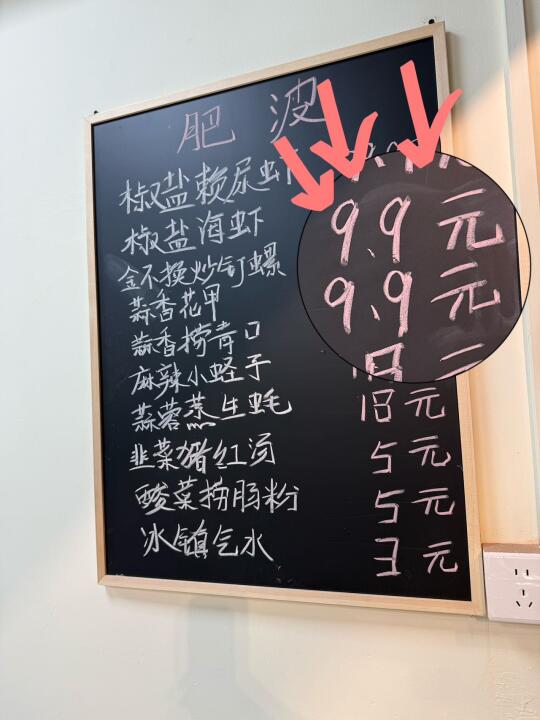 肥波
椒盐赖尿虾
椒盐海虾 9、9元
金不换炒钉螺 9、9元
蒜香花甲
蒜香捞青口
麻辣小蛏子
蒜蓉蒸生蚝 18元
韭菜猪红汤 5元
酸菜捞肠粉 5元
冰镇气水 3元